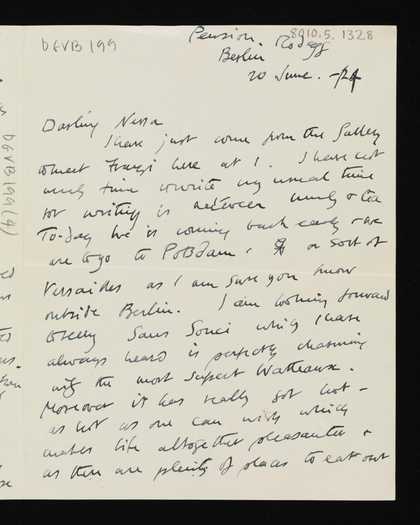 bGVB 199
8010.5.1328
Pension
Berlin
20 June. -24
Darling Nessa
I have just come from the Gallery
to meet here at 1. I have not
much time to write my usual time
for writing is between lunch & tea
To-day he is coming back early & we
are to go to Potsdam, a sort of
Versailles as I am sure you know
outside Berlin. I am looking forward
to seeing Sans Souci which I have
always heard is perfectly charming
with the most superb Watteaux.
Moreover it has really got hot -
as hot as one can wish which
makes life altogether pleasanter &
as there are plenty of places to eat out
bGVB199(4)